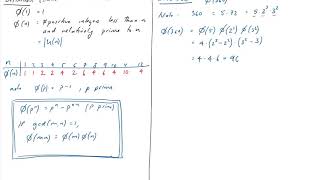 φ(1) = 1
φ(n) = # positive integers less than n
and relatively prime to n
= |U(n)|
n 1 2 3 4 5 6 7 8 9 10 12
φ(n) 1 1 2 2 4 2 6 4 6 4 4
note φ(p) = p-1, p prime
φ(pⁿ) = pⁿ - pⁿ⁻¹ (p prime)
If gcd(m,n)=1,
φ(mn) = φ(m)φ(n)
Note: 360 = 5·72 = 5·2³·3²
φ(360) = φ(5) φ(2³) φ(3²)
= 4·(2³-2²)·(3²-3)
= 4·4·6 = 96